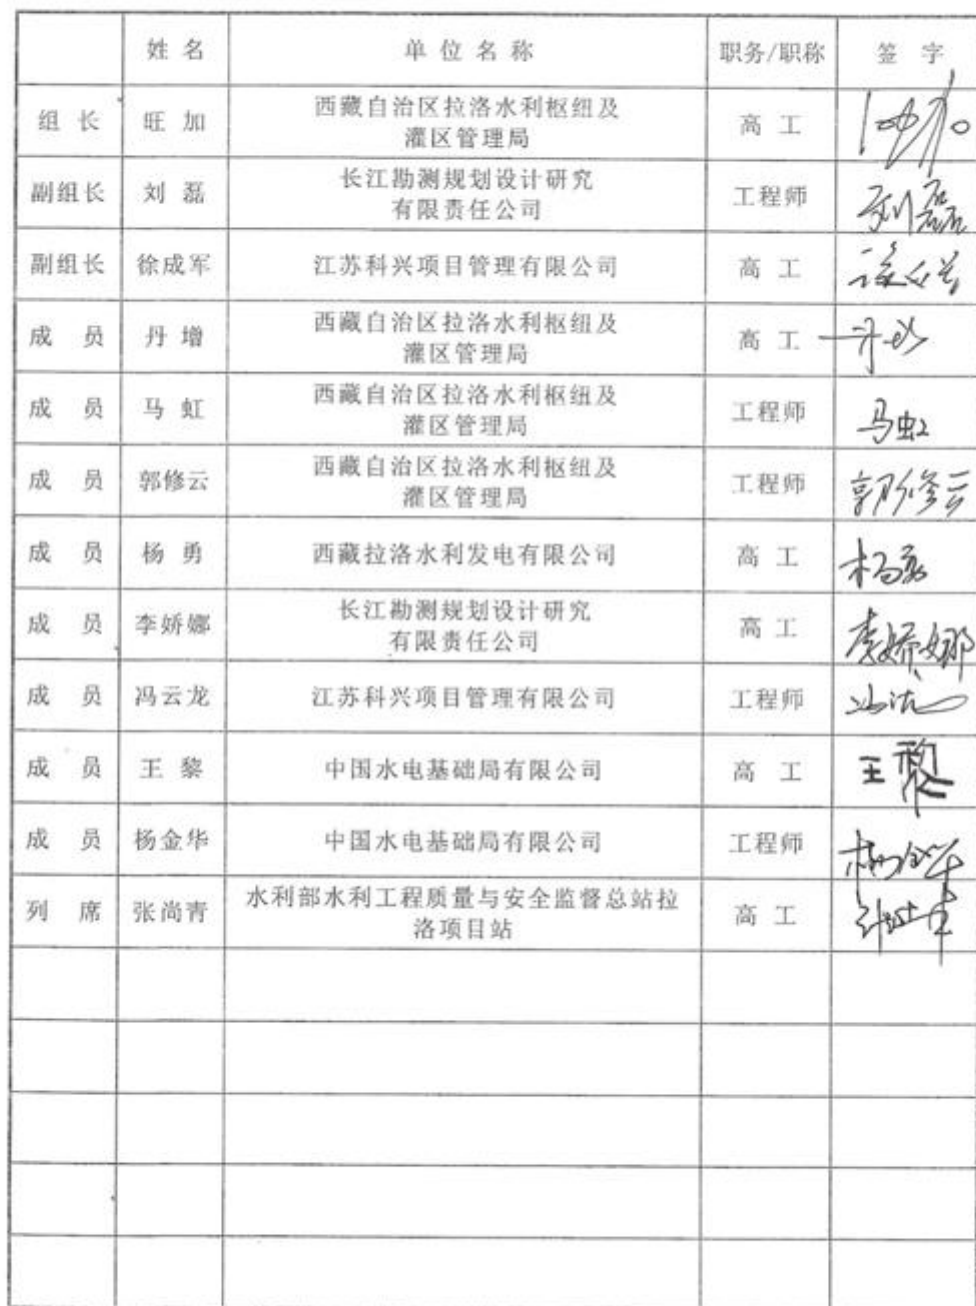 姓 名 单 位 名 称 职务/职称 签 字
组 长 旺 加 西藏自治区拉洛水利枢纽及 高 工
灌区管理局
副组长 刘 磊 长江勘测规划设计研究 工程师 刘磊
有限责任公司
副组长 徐成军 江苏科兴项目管理有限公司 高 工
成 员 丹 增 西藏自治区拉洛水利枢纽及 高 工
灌区管理局
成 员 马 虹 西藏自治区拉洛水利枢纽及 工程师 马虹
灌区管理局
成 员 郭修云 西藏自治区拉洛水利枢纽及 工程师 郭修云
灌区管理局
成 员 杨 勇 西藏拉洛水利发电有限公司 高 工 杨勇
成 员 李娇娜 长江勘测规划设计研究 高 工 李娇娜
有限责任公司
成 员 冯云龙 江苏科兴项目管理有限公司 工程师
成 员 王 黎 中国水电基础局有限公司 高 工 王黎
成 员 杨金华 中国水电基础局有限公司 工程师 杨金华
列 席 张尚青 水利部水利工程质量与安全监督总站拉 高 工
洛项目站